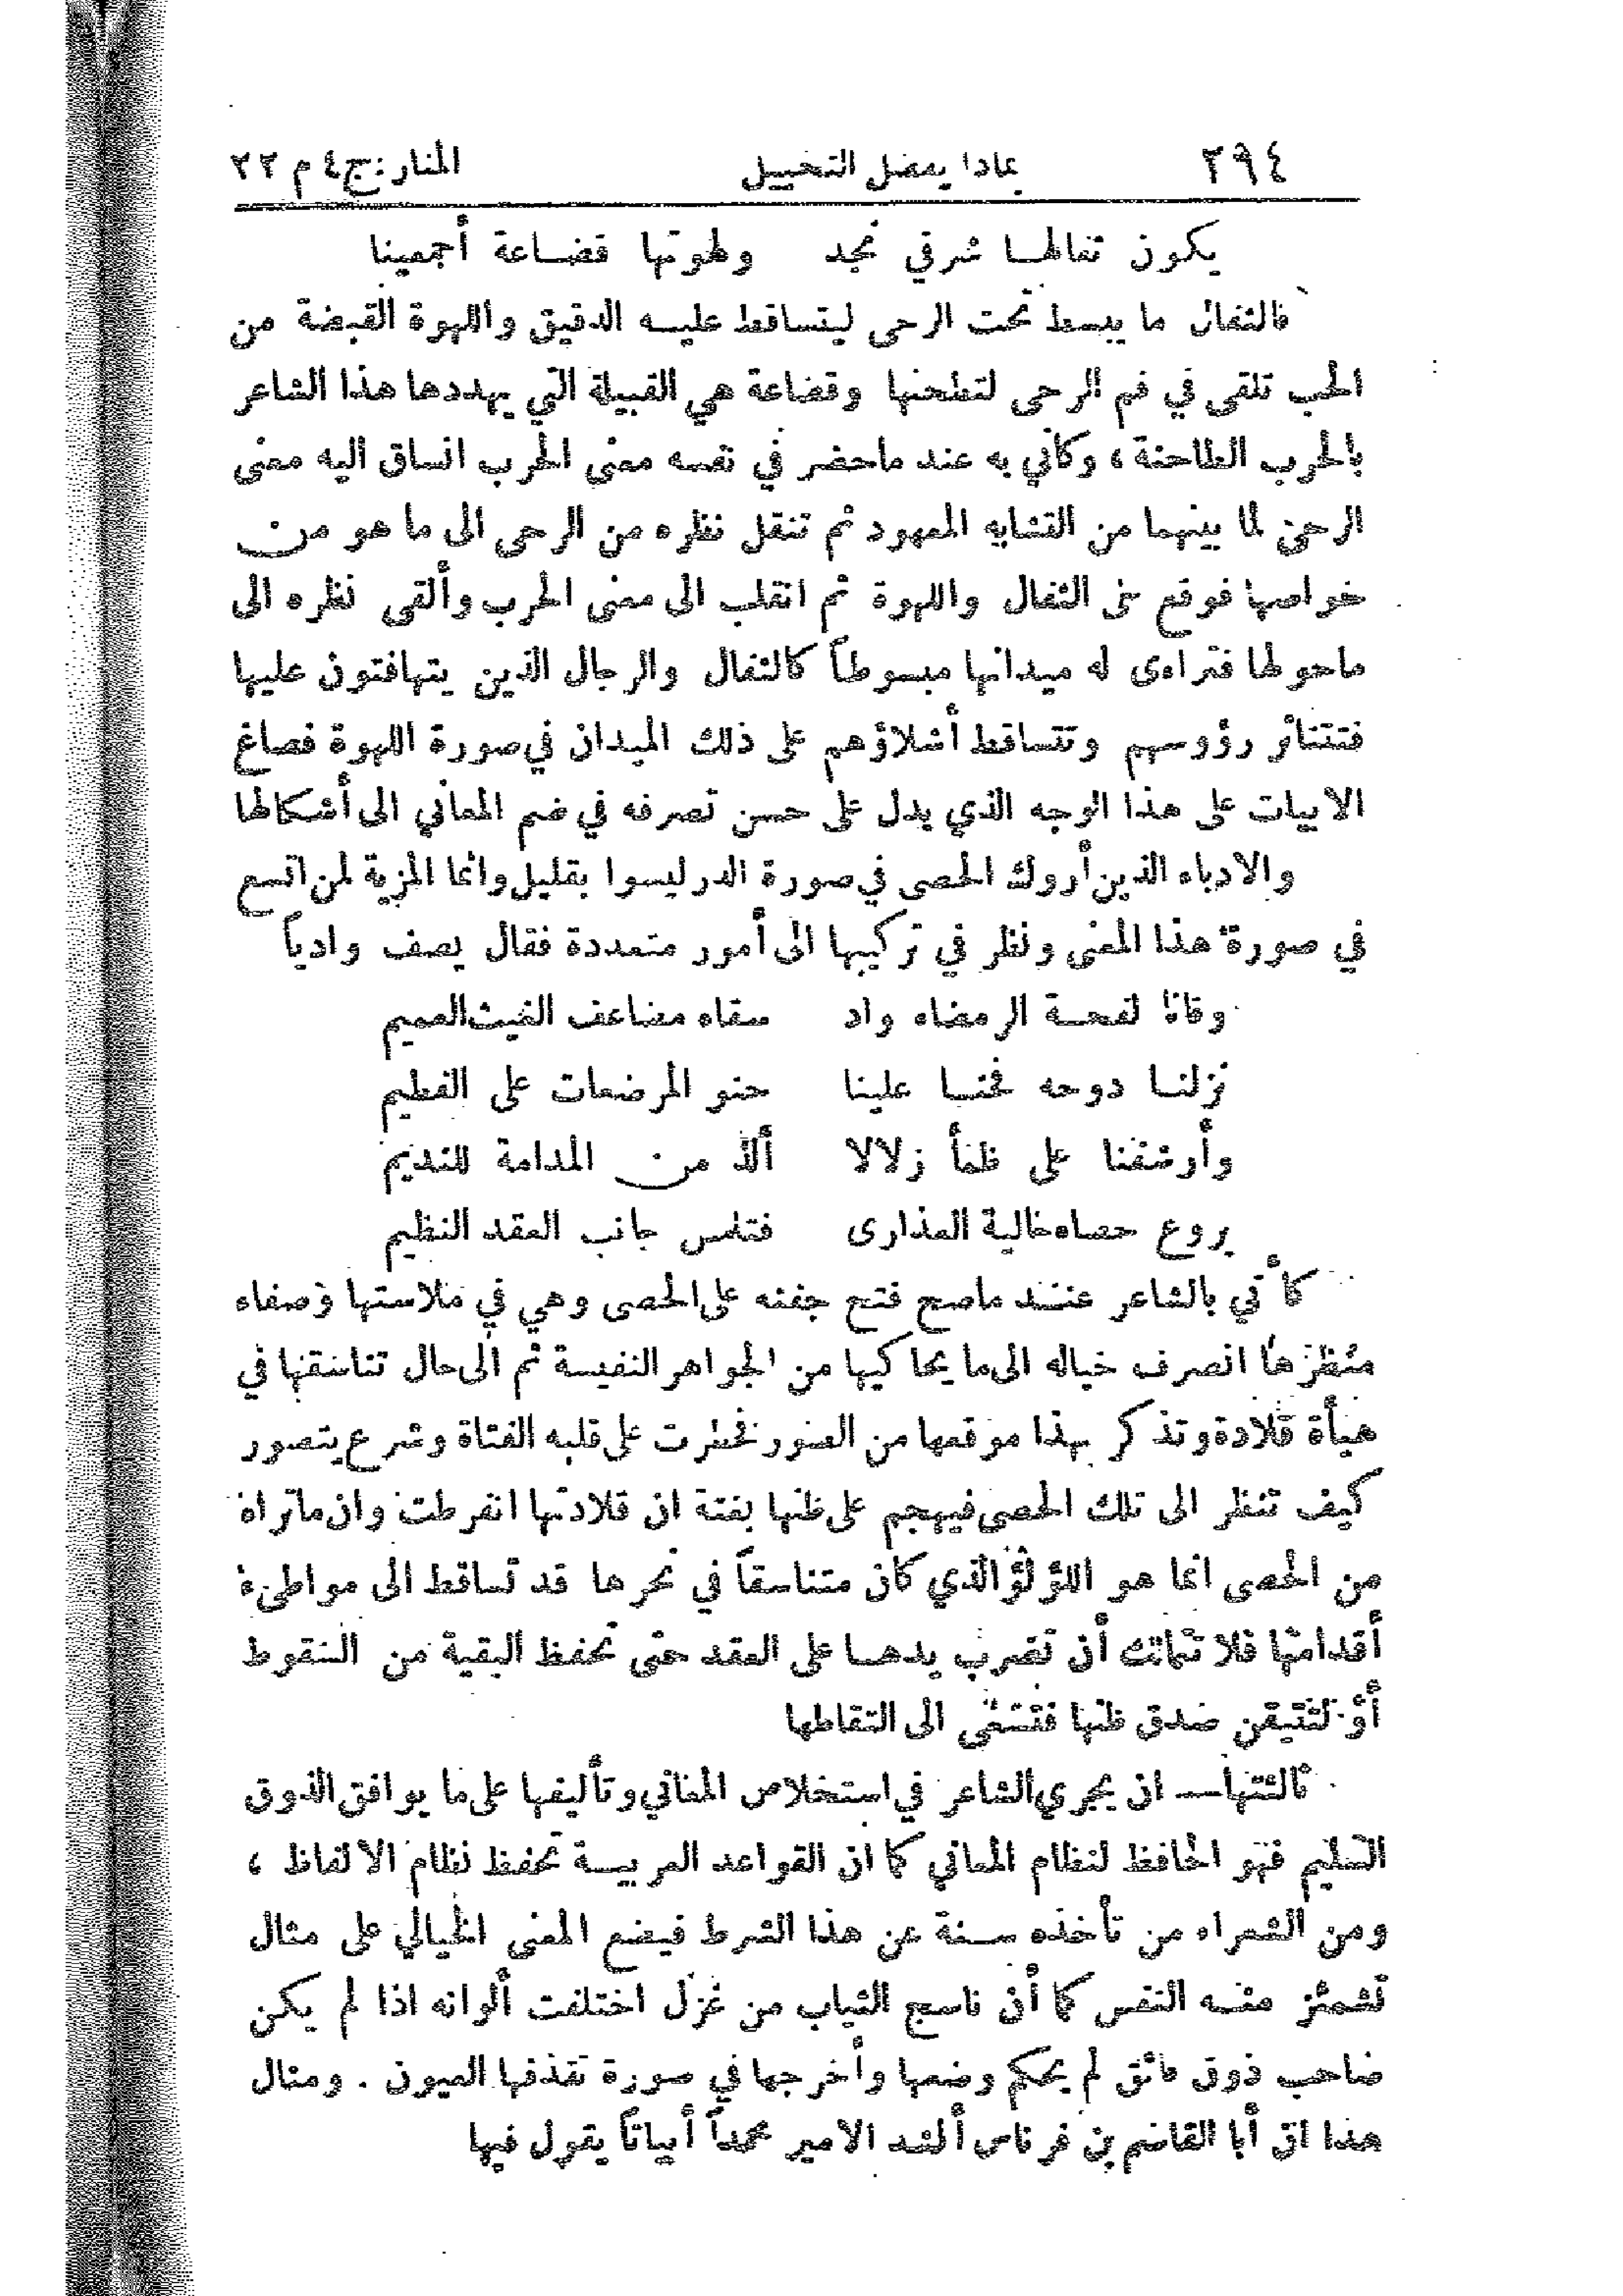 ٢٩٤ بماذا يفضل التخييل المنار: ج ٤ م ٢٢
يكون ثفالها شرقي نجد ولهوتها قضاعة أجمعينا
فالثفال ما يبسط تحت الرحى ليتساقط عليه الدقيق واللهوة القبضة من
الحب تلقى في فم الرحى لتطحنها وقضاعة هي القبيلة التي يهددها هذا الشاعر
بالحرب الطاحنة، وكأني به عند ماحضر في نفسه معنى الحرب انساق اليه معنى
الرحى لما بينهما من التشابه المعهود ثم تنقل نظره من الرحى الى ما هو من
خواصها فوقع على الثفال واللهوة ثم انقلب الى معنى الحرب وألقى نظره الى
ماحولها فتراءى له ميدانها مبسوطاً كالثفال والرجال الذين يتهافتون عليها
فتتناثر رؤوسهم وتتساقط أشلاؤهم على ذلك الميدان في صورة اللهوة فصاغ
الابيات على هذا الوجه الذي يدل على حسن تصرفه في ضم المعاني الى أشكالها
والادباء الذين أروك الحصى في صورة الدر ليسوا بقليل وانما المزية لمن اتسع
في صورة هذا المعنى ونظر في تركيبها الى أمور متعددة فقال يصف وادياً
وقانا لفحة الرمضاء واد سقاه مضاعف الغيث العميم
نزلنا دوحه فحنا علينا حنو المرضعات على الفطيم
وأرشفنا على ظمأ زلالا ألذ من المدامة للنديم
يروع حصاه حالية العذارى فتلمس جانب العقد النظيم
كأني بالشاعر عند ماصح فتح جفنه على الحصى وهي في ملاستها وصفاء
منظرها انصرف خياله الى ما يحاكيها من الجواهر النفيسة ثم الى حال تناسقها في
هيأة قلادة وتذكر بهذا موقعها من الصور فخطرت على قلبه الفتاة وشرع يتصور
كيف تنظر الى تلك الحصى فيهجم على ظنها بغتة ان قلادتها انفرطت وان ماتراه
من الحصى انما هو اللؤلؤ الذي كان متناسقاً في نحرها قد تساقط الى مواطىء
أقدامها فلا تتمالك أن تضرب يدها على العقد حتى تحفظ البقية من السقوط
أو لتتيقن صدق ظنها فتسعى الى التقاطها
ثالثتها— ان يجري الشاعر في استخلاص المعاني وتأليفها على ما يوافق الذوق
السليم فهو الحافظ لنظام المعاني كما ان القواعد العربية تحفظ نظام الالفاظ،
ومن الشعراء من تأخذه سنة عن هذا الشرط فيضع المعنى الخيالي على مثال
تشمئز منه النفس كما أن ناسج الثياب من غزل اختلفت ألوانه اذا لم يكن
صاحب ذوق فائق لم يحكم وضعها وأخرجها في صورة تقذفها العيون. ومثال
هذا ان أبا القاسم بن فرناس أنشد الامير محمداً أبياتاً يقول فيها